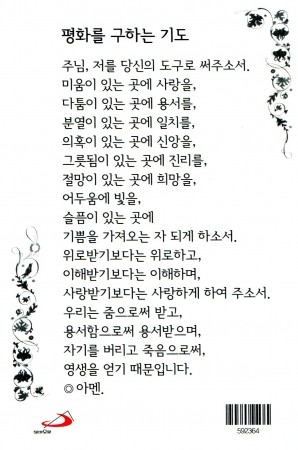 평화를 구하는 기도
주님, 저를 당신의 도구로 써주소서.
미움이 있는 곳에 사랑을,
다툼이 있는 곳에 용서를,
분열이 있는 곳에 일치를,
의혹이 있는 곳에 신앙을,
그릇됨이 있는 곳에 진리를,
절망이 있는 곳에 희망을,
어두움에 빛을,
슬픔이 있는 곳에
기쁨을 가져오는 자 되게 하소서.
위로받기보다는 위로하고,
이해받기보다는 이해하며,
사랑받기보다는 사랑하게 하여 주소서.
우리는 줌으로써 받고,
용서함으로써 용서받으며,
자기를 버리고 죽음으로써,
영생을 얻기 때문입니다.
◎ 아멘.
592364